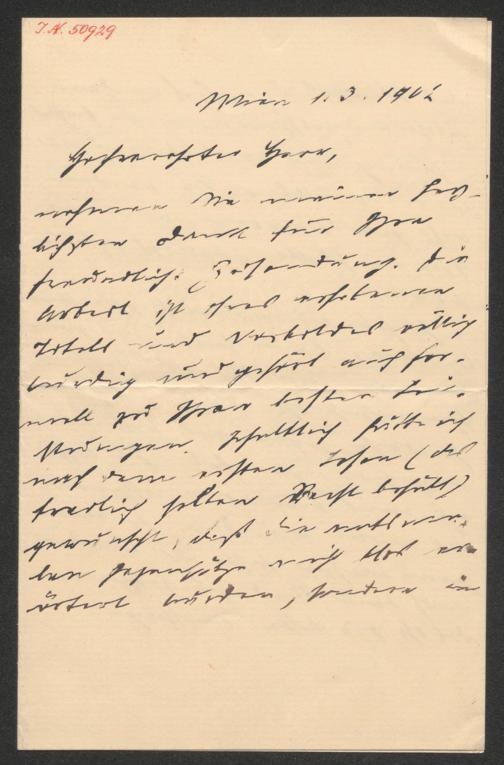 I.N. 50929
Wien 1.3.1902
Hochverehrter Herr,
nehmen Sie meinen herz-
lichsten Dank für Ihre
freundliche Zusendung. Die
Arbeit ist ihres erhabenen
Titels und Vorbildes völlig
würdig und gehört auch for-
mell zu Ihren besten Lei-
stungen. Inhaltlich hätte ich
nach dem ersten Lesen (das
freilich selten Recht behält)
gewünscht, daß die
Gegensätze nicht blos er-
örtert würden, sondern in